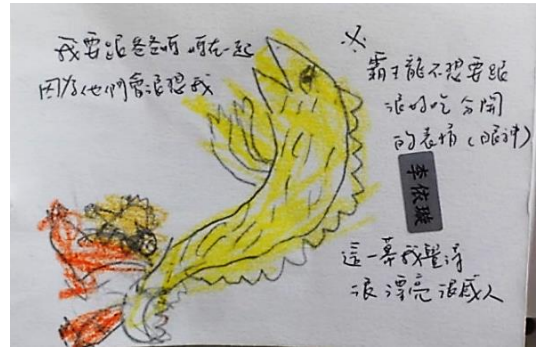 我要跟爸爸媽媽在一起
因為他們會很想我
※
霸王龍不想要跟
很好吃分開
的表情(眼神)
李依璇
這一幕我覺得
很漂亮很感人